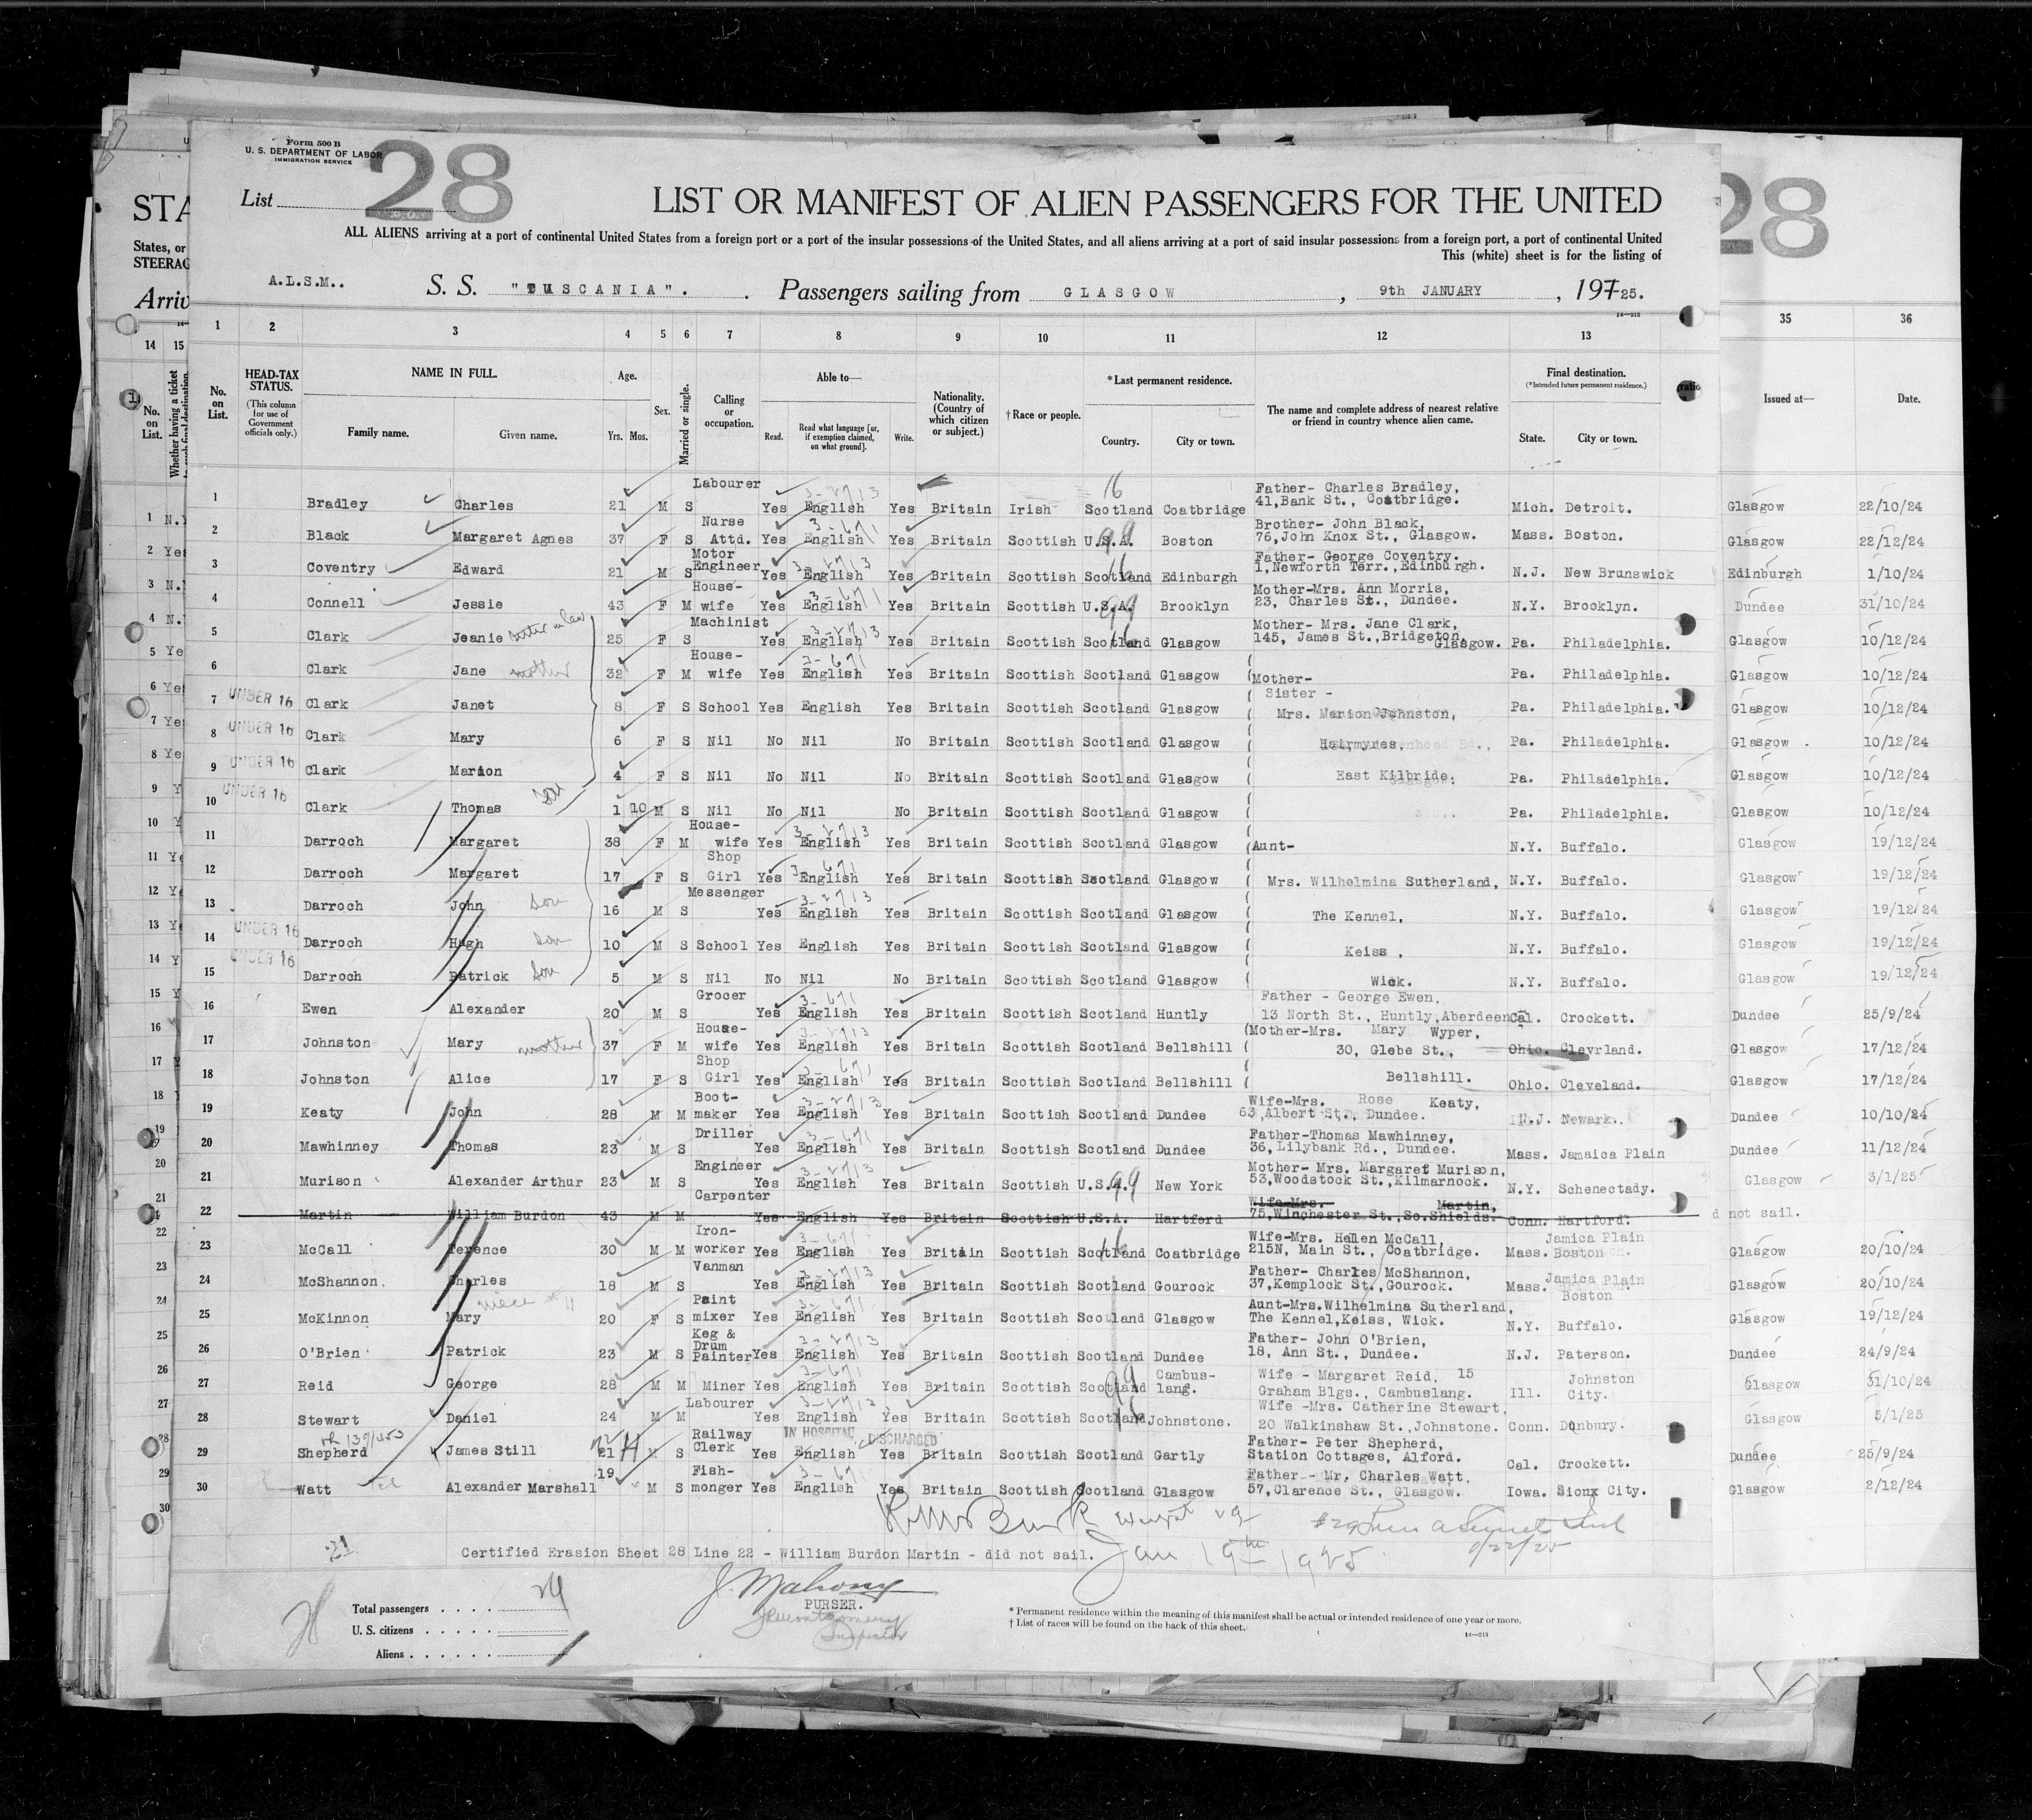 Form 500 B
U. S. DEPARTMENT OF LABOR
IMMIGRATION SERVICE
28
List
LIST OR MANIFEST OF ALIEN PASSENGERS FOR THE UNITED
28
STA
ALL ALIENS arriving at a port of continental United States from a foreign port or a port of the insular possessions of the United States, and all aliens arriving at a port of said insular possessions from a foreign port, a port of continental United
States, or
This (white) sheet is for the listing of
STEERAG
A.L.S.M.. S. S. "TUSCANIA". Passengers sailing from GLASGOW, 9th JANUARY, 1925.
Arriv
1 2 3 4 5 6 7 8 9 10 11 12 13 35 36
14 15
No. on List. HEAD-TAX STATUS. (This column for use of Government officials only.) NAME IN FULL. Family name. Given name. Age. Yrs. Mos. Sex. Married or single. Calling or occupation. Able to— Read. Read what language [or, if exemption claimed, on what ground]. Write. Nationality. (Country of which citizen or subject.) †Race or people. *Last permanent residence. Country. City or town. The name and complete address of nearest relative or friend in country whence alien came. Final destination. (*Intended future permanent residence.) State. City or town. Issued at— Date.
No. on List. Whether having a ticket
1 Bradley Charles 21 M S Labourer Yes English Yes Britain Irish Scotland Coatbridge Father- Charles Bradley, 41, Bank St., Coatbridge. Mich. Detroit. Glasgow 22/10/24
2 Black Margaret Agnes 37 F S Nurse Attd. Yes English Yes Britain Scottish U.S.A. Boston Brother- John Black, 76, John Knox St., Glasgow. Mass. Boston. Glasgow 22/12/24
3 Coventry Edward 21 M S Motor Engineer Yes English Yes Britain Scottish Scotland Edinburgh Father- George Coventry. 1, Newforth Terr., Edinburgh. N.J. New Brunswick Edinburgh 1/10/24
4 Connell Jessie 43 F M House-wife Yes English Yes Britain Scottish U.S.A. Brooklyn Mother-Mrs. Ann Morris, 23, Charles St., Dundee. N.Y. Brooklyn. Dundee 31/10/24
5 Clark Jeanie sister in law 25 F S Machinist Yes English Yes Britain Scottish Scotland Glasgow Mother- Mrs. Jane Clark, 145, James St., Bridgeton, Glasgow. Pa. Philadelphia. Glasgow 10/12/24
6 Clark Jane mother 32 F M House-wife Yes English Yes Britain Scottish Scotland Glasgow Mother- Pa. Philadelphia. Glasgow 10/12/24
7 UNDER 16 Clark Janet 8 F S School Yes English Britain Scottish Scotland Glasgow Sister - Mrs. Marion Johnston, Pa. Philadelphia. Glasgow 10/12/24
8 UNDER 16 Clark Mary 6 F S Nil No Nil No Britain Scottish Scotland Glasgow Hairmyres, Pa. Philadelphia. Glasgow 10/12/24
9 UNDER 16 Clark Marion 4 F S Nil No Nil No Britain Scottish Scotland Glasgow East Kilbride. Pa. Philadelphia. Glasgow 10/12/24
10 UNDER 16 Clark Thomas son 1 10 M S Nil No Nil No Britain Scottish Scotland Glasgow Pa. Philadelphia. Glasgow 10/12/24
11 Darroch Margaret 38 F M House-wife Yes English Yes Britain Scottish Scotland Glasgow Aunt- N.Y. Buffalo. Glasgow 19/12/24
12 Darroch Margaret 17 F S Shop Girl Yes English Yes Britain Scottish Scotland Glasgow Mrs. Wilhelmina Sutherland, N.Y. Buffalo. Glasgow 19/12/24
13 Darroch John Son 16 M S Messenger Yes English Yes Britain Scottish Scotland Glasgow The Kennel, N.Y. Buffalo. Glasgow 19/12/24
14 UNDER 16 Darroch Hugh Son 10 M S School Yes English Yes Britain Scottish Scotland Glasgow Keiss, N.Y. Buffalo. Glasgow 19/12/24
15 UNDER 16 Darroch Patrick Son 5 M S Nil No Nil No Britain Scottish Scotland Glasgow Wick. N.Y. Buffalo. Glasgow 19/12/24
16 Ewen Alexander 20 M S Grocer Yes English Yes Britain Scottish Scotland Huntly Father - George Ewen, 13 North St., Huntly, Aberdeen Cal. Crockett. Dundee 25/9/24
17 Johnston Mary mother 37 F M House-wife Yes English Yes Britain Scottish Scotland Bellshill Mother-Mrs. Mary Wyper, 30, Glebe St., Ohio. Clevrland. Glasgow 17/12/24
18 Johnston Alice 17 F S Shop Girl Yes English Yes Britain Scottish Scotland Bellshill Bellshill. Ohio. Cleveland. Glasgow 17/12/24
19 Keaty John 28 M M Boot-maker Yes English Yes Britain Scottish Scotland Dundee Wife-Mrs. Rose Keaty, 63, Albert St., Dundee. N.J. Newark. Dundee 10/10/24
20 Mawhinney Thomas 23 M S Driller Yes English Yes Britain Scottish Scotland Dundee Father-Thomas Mawhinney, 36, Lilybank Rd., Dundee. Mass. Jamaica Plain Dundee 11/12/24
21 Murison Alexander Arthur 23 M S Engineer Yes English Yes Britain Scottish U.S.A. New York Mother- Mrs. Margaret Murison, 53, Woodstock St., Kilmarnock. N.Y. Schenectady. Glasgow 3/1/25
22 Martin William Burdon 43 M M Carpenter Yes English Yes Britain Scottish U.S.A. Hartford Wife-Mrs. Martin, 75, Winchester St., So. Shields. Conn. Hartford. d not sail.
23 McCall Terence 30 M M Iron-worker Yes English Yes Britain Scottish Scotland Coatbridge Wife-Mrs. Hellen McCall, 215N, Main St., Coatbridge. Mass. Jamica Plain Boston Glasgow 20/10/24
24 McShannon. Charles 18 M S Vanman Yes English Yes Britain Scottish Scotland Gourock Father- Charles McShannon, 37, Kemplock St., Gourock. Mass. Jamica Plain Boston Glasgow 20/10/24
25 McKinnon Mary niece # 11 20 F S Paint mixer Yes English Yes Britain Scottish Scotland Glasgow Aunt-Mrs. Wilhelmina Sutherland, The Kennel, Keiss, Wick. N.Y. Buffalo. Glasgow 19/12/24
26 O'Brien Patrick 23 M S Keg & Drum Painter Yes English Yes Britain Scottish Scotland Dundee Father- John O'Brien, 18, Ann St., Dundee. N.J. Paterson. Dundee 24/9/24
27 Reid George 28 M M Miner Yes English Yes Britain Scottish Scotland Cambus-lang. Wife - Margaret Reid, 15 Graham Blgs., Cambuslang. Ill. Johnston City. Glasgow 31/10/24
28 Stewart Daniel 24 M M Labourer Yes English Yes Britain Scottish Scotland Johnstone. Wife -Mrs. Catherine Stewart, 20 Walkinshaw St., Johnstone. Conn. Danbury. Glasgow 5/1/25
29 Shepherd James Still 21 M S Railway Clerk IN HOSPITAL DISCHARGED Yes English Yes Britain Scottish Scotland Gartly Father- Peter Shepherd, Station Cottages, Alford. Cal. Crockett. Dundee 25/9/24
30 Watt Alexander Marshall 19 M S Fish-monger Yes English Yes Britain Scottish Scotland Glasgow Father - Mr. Charles Watt, 57, Clarence St., Glasgow. Iowa. Sioux City. Glasgow 2/12/24
Certified Erasion Sheet 28 Line 22 - William Burdon Martin - did not sail. Jan 19th 1925
J. Mahony
PURSER.
Inspector
Total passengers
U. S. citizens
Aliens
* Permanent residence within the meaning of this manifest shall be actual or intended residence of one year or more.
† List of races will be found on the back of this sheet.
14—213